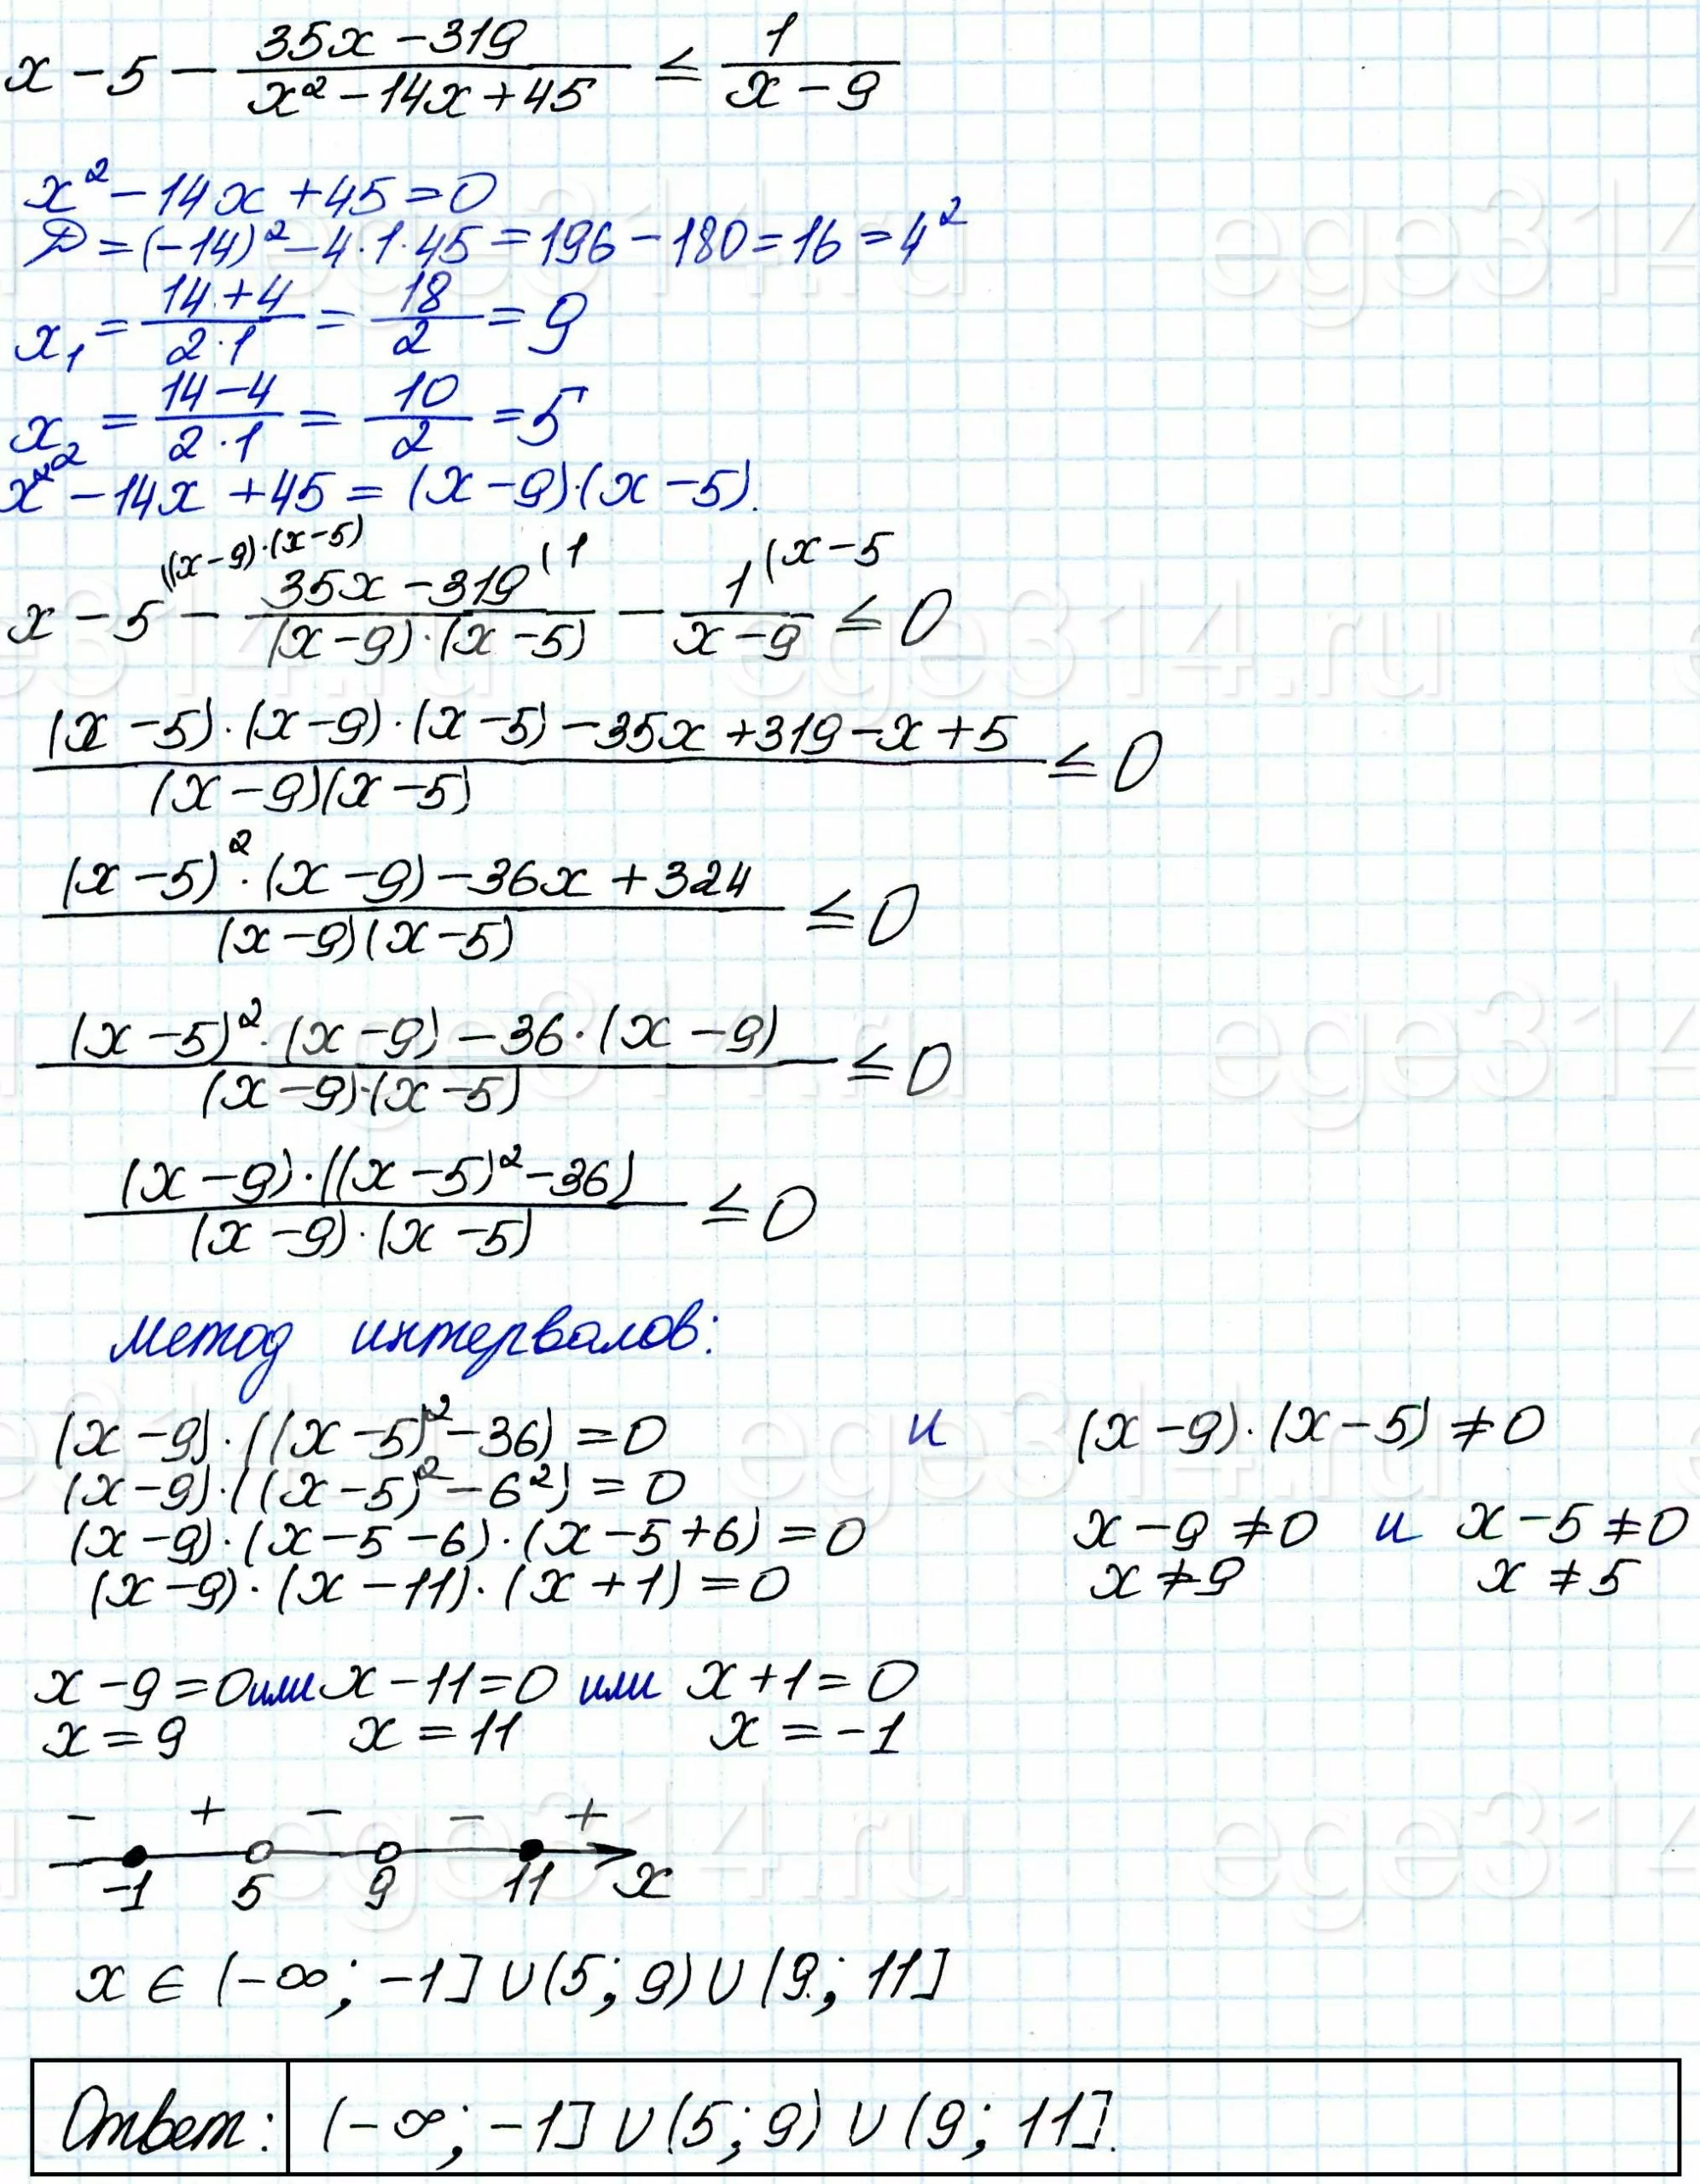 x − 5 − (35x − 319)/(x² − 14x + 45) ≤ 1/(x − 9)
x² − 14x + 45 = 0
D = (−14)² − 4·1·45 = 196 − 180 = 16 = 4²
x₁ = (14 + 4)/(2·1) = 18/2 = 9
x₂ = (14 − 4)/(2·1) = 10/2 = 5
x² − 14x + 45 = (x − 9)·(x − 5).
((x − 9)·(x − 5) (1 (x − 5
x − 5 − (35x − 319)/((x − 9)·(x − 5)) − 1/(x − 9) ≤ 0
((x − 5)·(x − 9)·(x − 5) − 35x + 319 − x + 5)/((x − 9)(x − 5)) ≤ 0
((x − 5)²·(x − 9) − 36x + 324)/((x − 9)(x − 5)) ≤ 0
((x − 5)²·(x − 9) − 36·(x − 9))/((x − 9)·(x − 5)) ≤ 0
((x − 9)·((x − 5)² − 36))/((x − 9)·(x − 5)) ≤ 0
метод интервалов:
(x − 9)·((x − 5)² − 36) = 0 и (x − 9)·(x − 5) ≠ 0
(x − 9)·((x − 5)² − 6²) = 0
(x − 9)·(x − 5 − 6)·(x − 5 + 6) = 0 x − 9 ≠ 0 и x − 5 ≠ 0
(x − 9)·(x − 11)·(x + 1) = 0 x ≠ 9 x ≠ 5
x − 9 = 0 или x − 11 = 0 или x + 1 = 0
x = 9 x = 11 x = −1
− + − − +
−1 5 9 11 x
x ∈ (−∞; −1] ∪ (5; 9) ∪ (9; 11]
Ответ: (−∞; −1] ∪ (5; 9) ∪ (9; 11].
ege314.ru